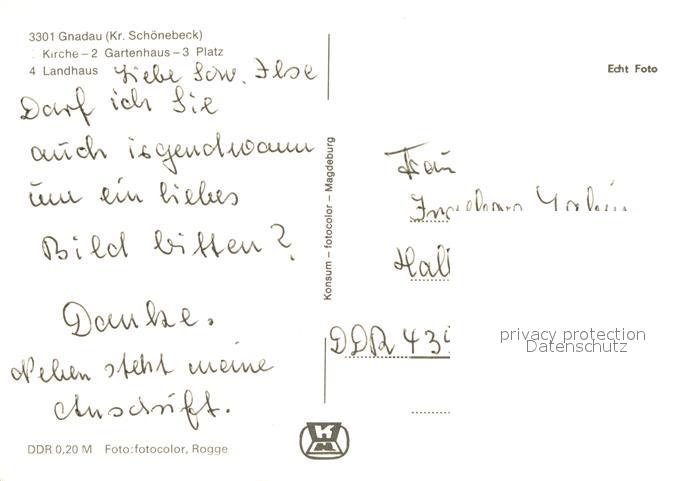 3301 Gnadau (Kr. Schönebeck)
Kirche – 2 Gartenhaus – 3 Platz
4 Landhaus
Liebe Schw. Ilse
Darf ich Sie
auch irgendwann
um ein liebes
Bild bitten?
Danke.
Neben steht meine
Anschrift.
DDR 0,20 M Foto: fotocolor, Rogge
Konsum – fotocolor – Magdeburg
Echt Foto
Frau
Hall
DDR 43
privacy protection
Datenschutz